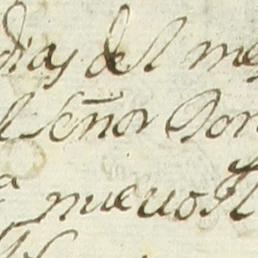 dias del me
l Señor Don
a nueuo